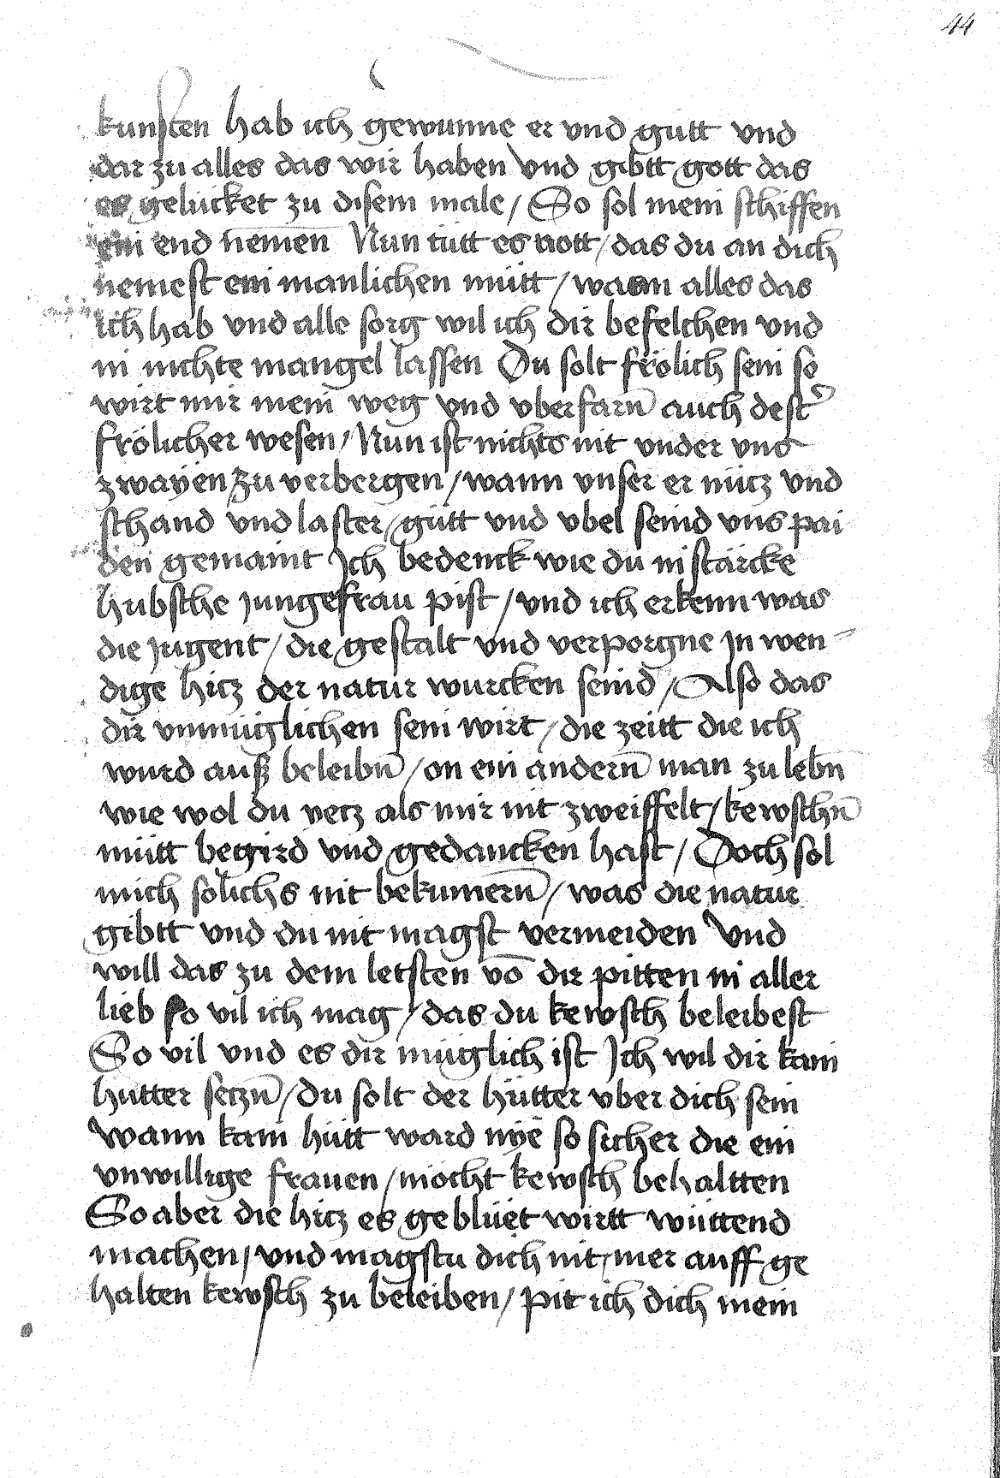 44
kunsten hab ich gewunne er vnd gutt vnd
dar zu alles das wir haben Vnd gibtt gott das
es gelücket zu disem male / So sol mein schiffen
ein end nemen Nun tütt es nott / das du an dich
nemest ein manlichen mütt / wann alles das
ich hab vnd alle sorg wil ich dir befelchen vnd
in nichte mangel lassen Du solt frölich sein so
wirt mir mein weg vnd vberfarn̄ auch dest̾
frölicher wesen / Nun ist nichts nit vnder vns
zwayen / zu verbergen / wann vnser er nücz vnd
schand vnd laster / gütt vnd vbel seind vns pai
den gemaint Ich bedenck wie du in stärcke
hübsche jungefrau pist / vnd ich erkenn was
die jugent / die gestalt vnd verporgne jn wen
dige hicz der natur wurcken seind / Also das
dir vnmüglichen sein wirt / die zeitt die ich
wurd auß beleibn̄ / on ein andern̄ man zu lebn̄
wie wol du yecz als mir nit zweiffelt / kewschn̄
mütt begird vnd gedancken hast / Doch sol
mich sölichs nit bekumern̄ / was die natur
gibtt vnd du nit magst vermeiden Vnd
will das zu dem letsten vō dir pitten in aller
lieb so vil ich mag / das du kewsch beleibest
So vil vnd es dir müglich ist Ich wil dir kain
hütter seczn̄ / du solt der hütter vber dich sein
Wann kain hütt ward nye so sicher die ein
vnwillige frauen / möcht kewsch behaltten
So aber die hicz es geblüet wirtt wüttend
machen / vnd magstu dich nit mer auff ge
halten kewsch zu beleiben / pit ich dich mein